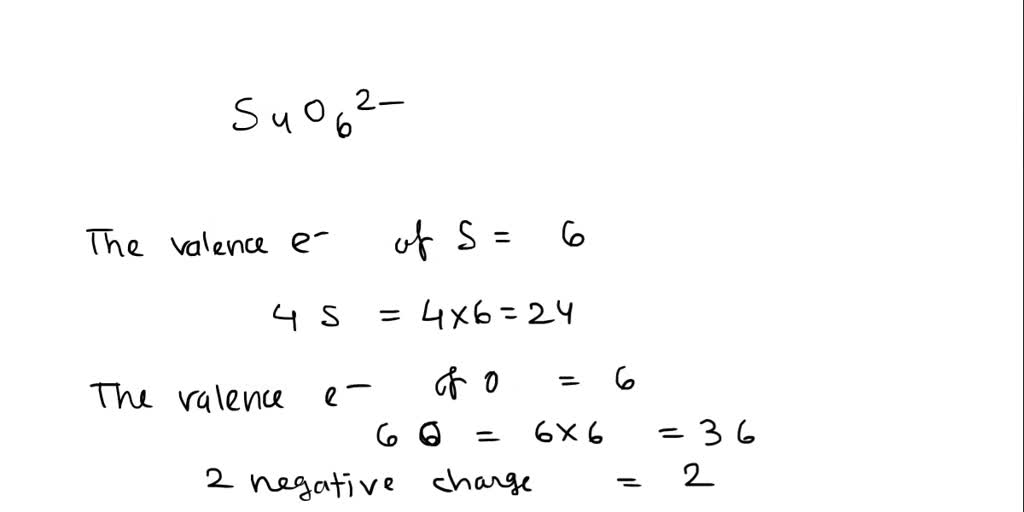 S4O6 2-
The valence e- of S = 6
4 S = 4x6 = 24
The valence e- of O = 6
6 O = 6x6 = 36
2 negative charge = 2